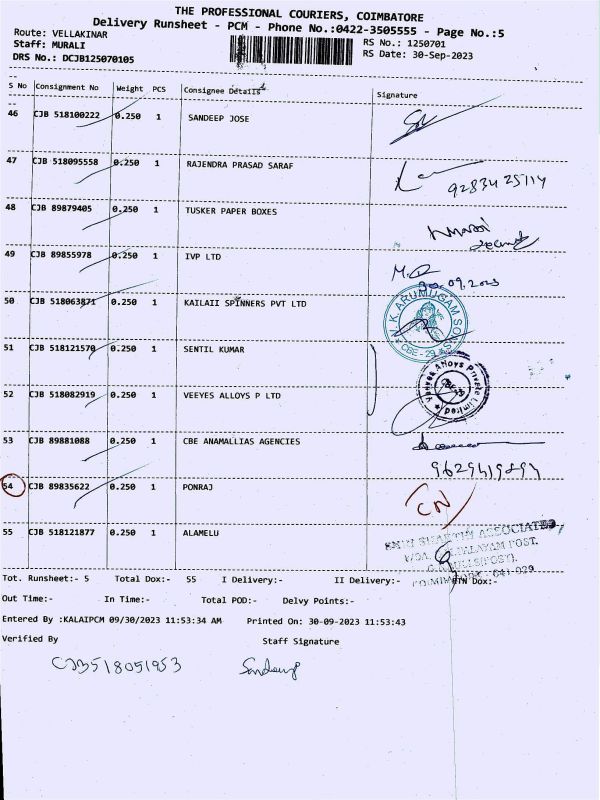 THE PROFESSIONAL COURIERS, COIMBATORE
Delivery Runsheet - PCM - Phone No.:0422-3505555 - Page No.:5
Route: VELLAKINAR
RS No.: 1250701
Staff: MURALI
RS Date: 30-Sep-2023
DRS No.: DCJB125070105
S No Consignment No Weight PCS Consignee Details Signature
46 CJB 518100222 0.250 1 SANDEEP JOSE
47 CJB 518095558 0.250 1 RAJENDRA PRASAD SARAF
9283425114
48 CJB 89879405 0.250 1 TUSKER PAPER BOXES
49 CJB 89855978 0.250 1 IVP LTD
30.09.2023
50 CJB 518063871 0.250 1 KAILAII SPINNERS PVT LTD
N.K ARUMUGAM SONS
CBE - 29
51 CJB 518121570 0.250 1 SENTIL KUMAR
52 CJB 518082919 0.250 1 VEEYES ALLOYS P LTD
Veeyes Alloys Private Limited
53 CJB 89881088 0.250 1 CBE ANAMALLIAS AGENCIES
54 CJB 89835622 0.250 1 PONRAJ
CN
55 CJB 518121877 0.250 1 ALAMELU
ASSOCIATED
POST.
641-029
Tot. Runsheet:- 5 Total Dox:- 55 I Delivery:- II Delivery:- Dox:-
Out Time:- In Time:- Total POD:- Delvy Points:-
Entered By :KALAIPCM 09/30/2023 11:53:34 AM Printed On: 30-09-2023 11:53:43
Verified By Staff Signature
CJB518051953